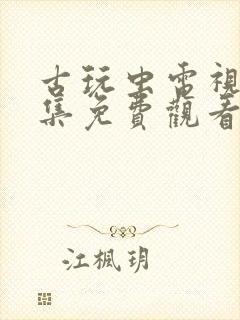 古玩虫電視
集免費觀看
江楓玥